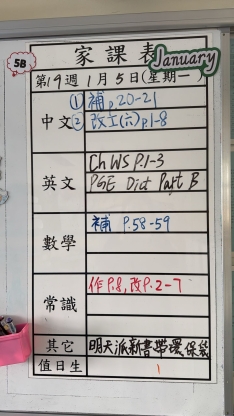 家課表
January
5B
第19週 1月5日(星期一
中文 ① 補 p.20-21
② 改工(六) p.1-8
英文 Ch WS P.1-3
PGE Dict Part B
數學 補 P.58-59
常識 作P.8, 改P.2-7
其它 明天派新書帶環保袋
值日生